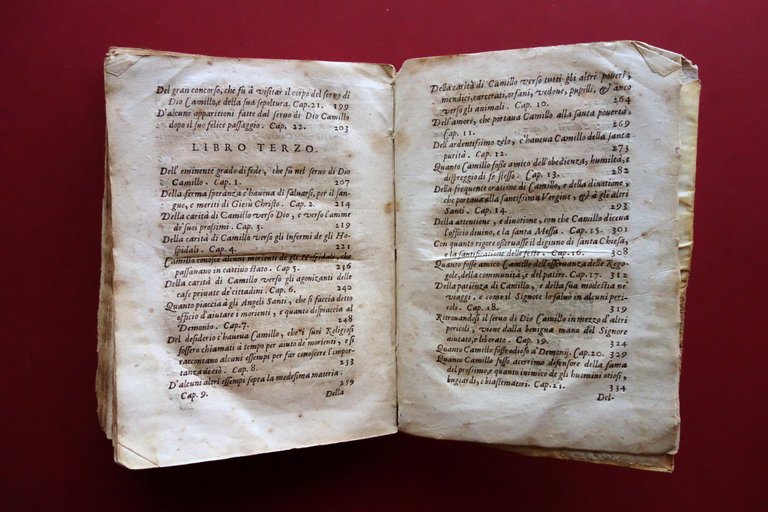 Del gran concorso, che fù à visitar il corpo del seruo di
Dio Camillo, e della sua sepoltura. Cap. 21. 199
D'alcune apparitioni fatte dal seruo di Dio Camillo
dopo il suo felice passaggio. Cap. 22. 203
LIBRO TERZO.
Dell'eminente grado di fede, che fù nel seruo di Dio
Camillo. Cap. 1. 207
Della ferma speranza c'haueua di saluarsi, per il san-
gue, e meriti di Giesù Christo. Cap. 2. 214
Della carità di Camillo verso Dio, e verso l'anime
de' suoi prossimi. Cap. 3. 219
Della carità di Camillo verso gli infermi de gli Ho-
spidali. Cap. 4. 221
Camillo conosce alcuni morienti de gli Hospidali, che
passauano in cattiuo stato. Cap. 5. 236
Della carità di Camillo verso gli agonizanti delle
case priuate de' cittadini. Cap. 6. 240
Quanto piaccia à gli Angeli Santi, che si faccia detto
officio d'aiutare i morienti, e quanto dispiaccia al
Demonio. Cap. 7. 248
Del desiderio c'haueua Camillo, che i suoi Religiosi
fossero chiamati à tempo per aiuto de' morienti, e si
raccontano alcuni essempi per far conoscere l'impor-
tanza di ciò. Cap. 8. 253
D'alcuni altri essempi sopra la medesima materia.
Cap. 9. 259
Della
Della carità di Camillo verso tutti gli altri poueri,
mendici, carcerati, orfani, vedoue, pupilli, & anco
verso gli animali. Cap. 10. 264
Dell'amore, che portaua Camillo alla santa pouertà.
Cap. 11. 269
Dell'ardentissimo zelo, c'haueua Camillo della santa
purità. Cap. 12. 273
Quanto Camillo fosse amico dell'obedienza, humiltà, e
dispreggio di se stesso. Cap. 13. 282
Della frequente oratione di Camillo, e della diuotione,
che portaua alla santissima Vergine, & à gli altri
Santi. Cap. 14. 293
Della attentione, e diuotione, con che Camillo diceua
l'officio diuino, e la santa Messa. Cap. 15. 301
Con quanto rigore osseruasse il digiuno di santa Chiesa,
e la santificatione delle feste. Cap. 16. 308
Quanto fosse amico Camillo dell'osseruanza delle Rego-
gole, della communità, e del patire. Cap. 17. 312
Della patienza di Camillo, e della sua modestia ne'
viaggi, e come il Signore lo saluò in alcuni peri-
coli. Cap. 18. 319
Ritrouandosi il seruo di Dio Camillo in mezzo d'altri
pericoli, viene dalla benigna mano del Signore
aiutato, e liberato. Cap. 19. 324
Quanto Camillo fosse odioso a' Demonij. Cap. 20. 329
Quanto Camillo fosse acerrimo difensore della fama
del prossimo, e quanto inimico de gli huomini otiosi,
bugiardi, e biastematori. Cap. 21. 334
Del-